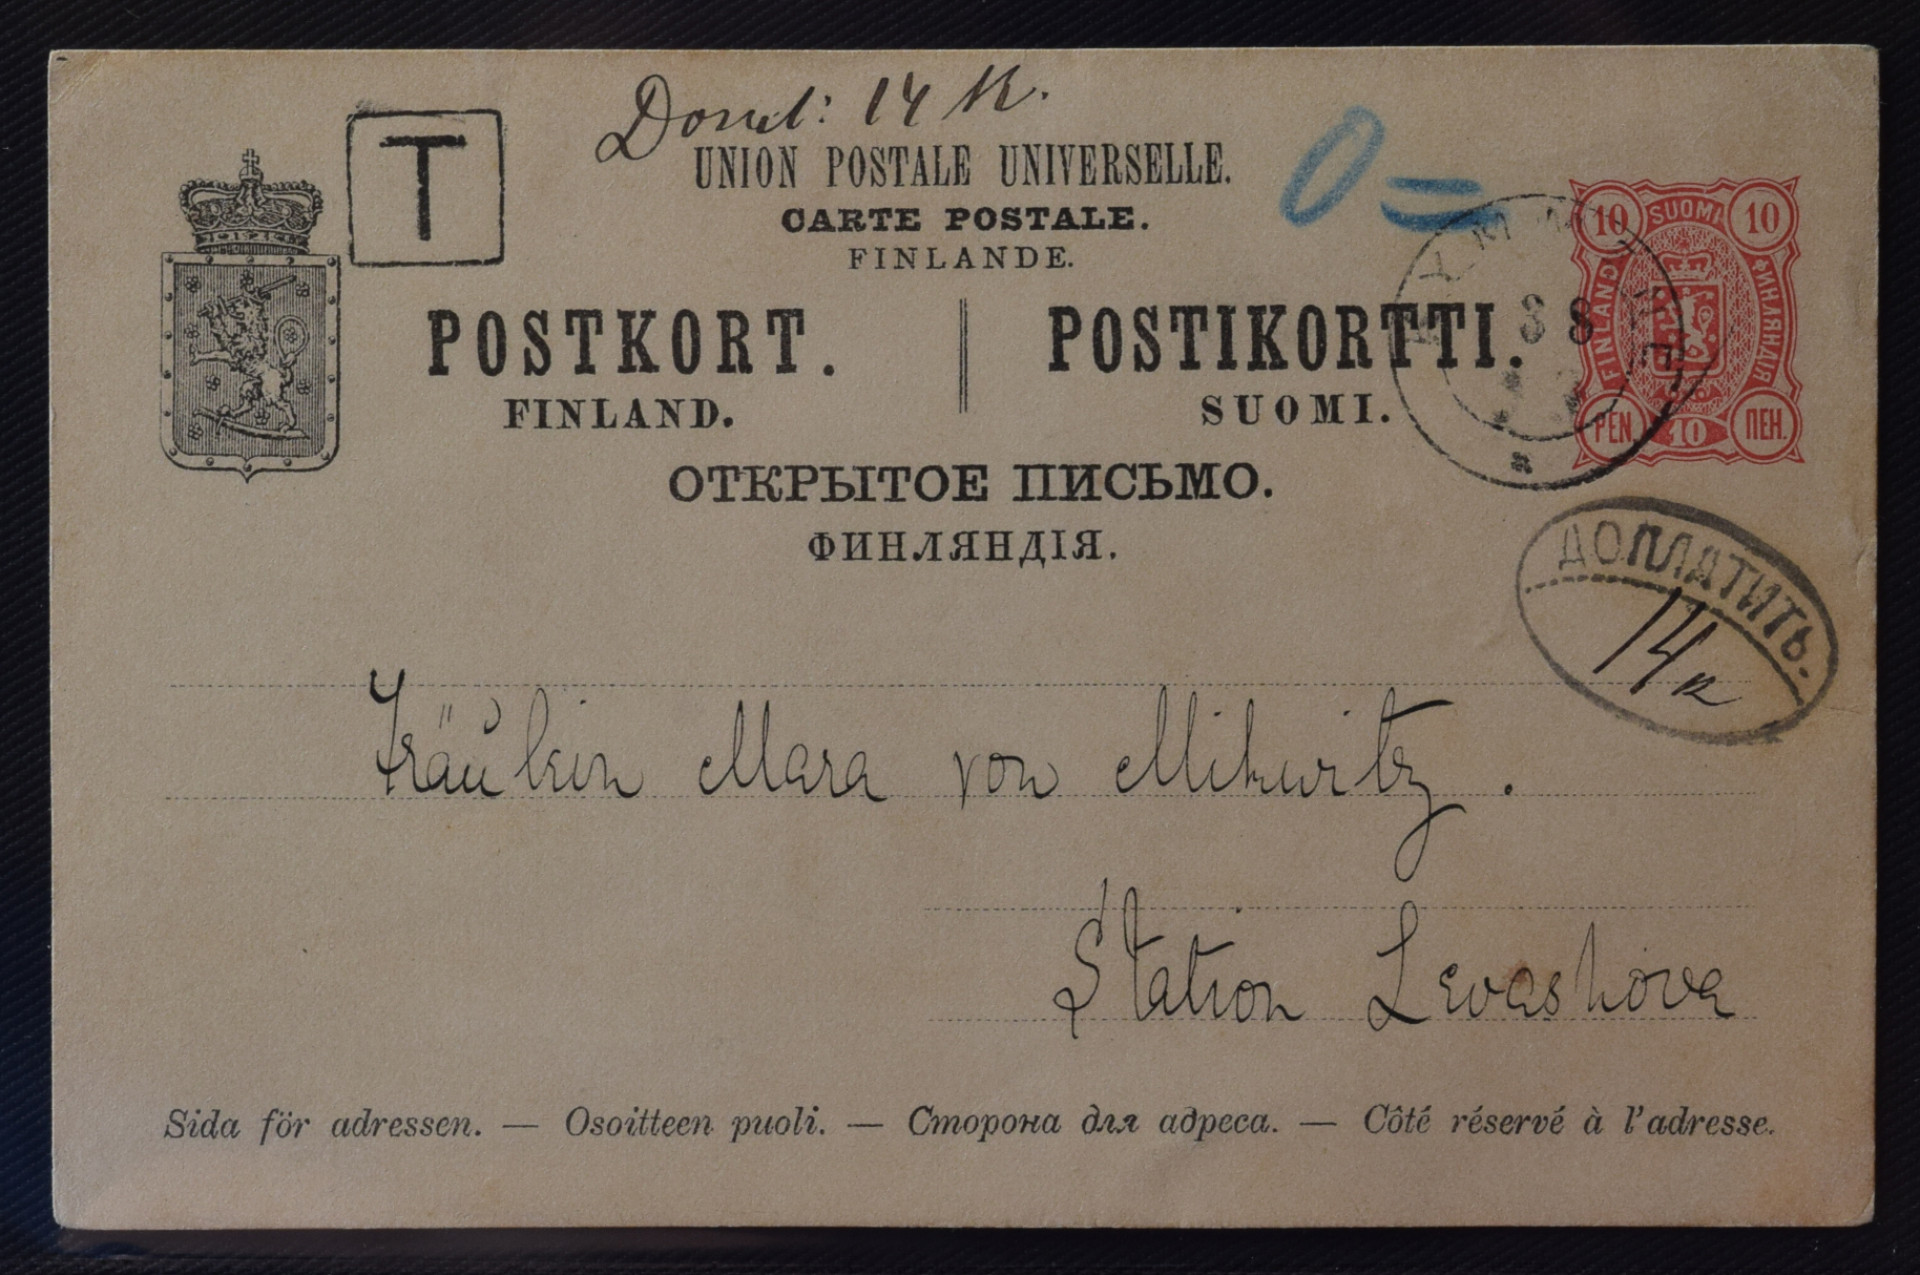 14 к.
T
UNION POSTALE UNIVERSELLE.
CARTE POSTALE.
FINLANDE.
POSTKORT.
FINLAND.
POSTIKORTTI.
SUOMI.
ОТКРЫТОЕ ПИСЬМО.
ФИНЛЯНДІЯ.
10 SUOMI 10
FINLAND
ФИНЛЯНДІЯ
PEN. 10 ПЕН.
ДОПЛАТИТЬ.
14 к
Fräulein Mara von
Station Levashova
Sida för adressen. — Osoitteen puoli. — Сторона для адреса. — Côté réservé à l'adresse.